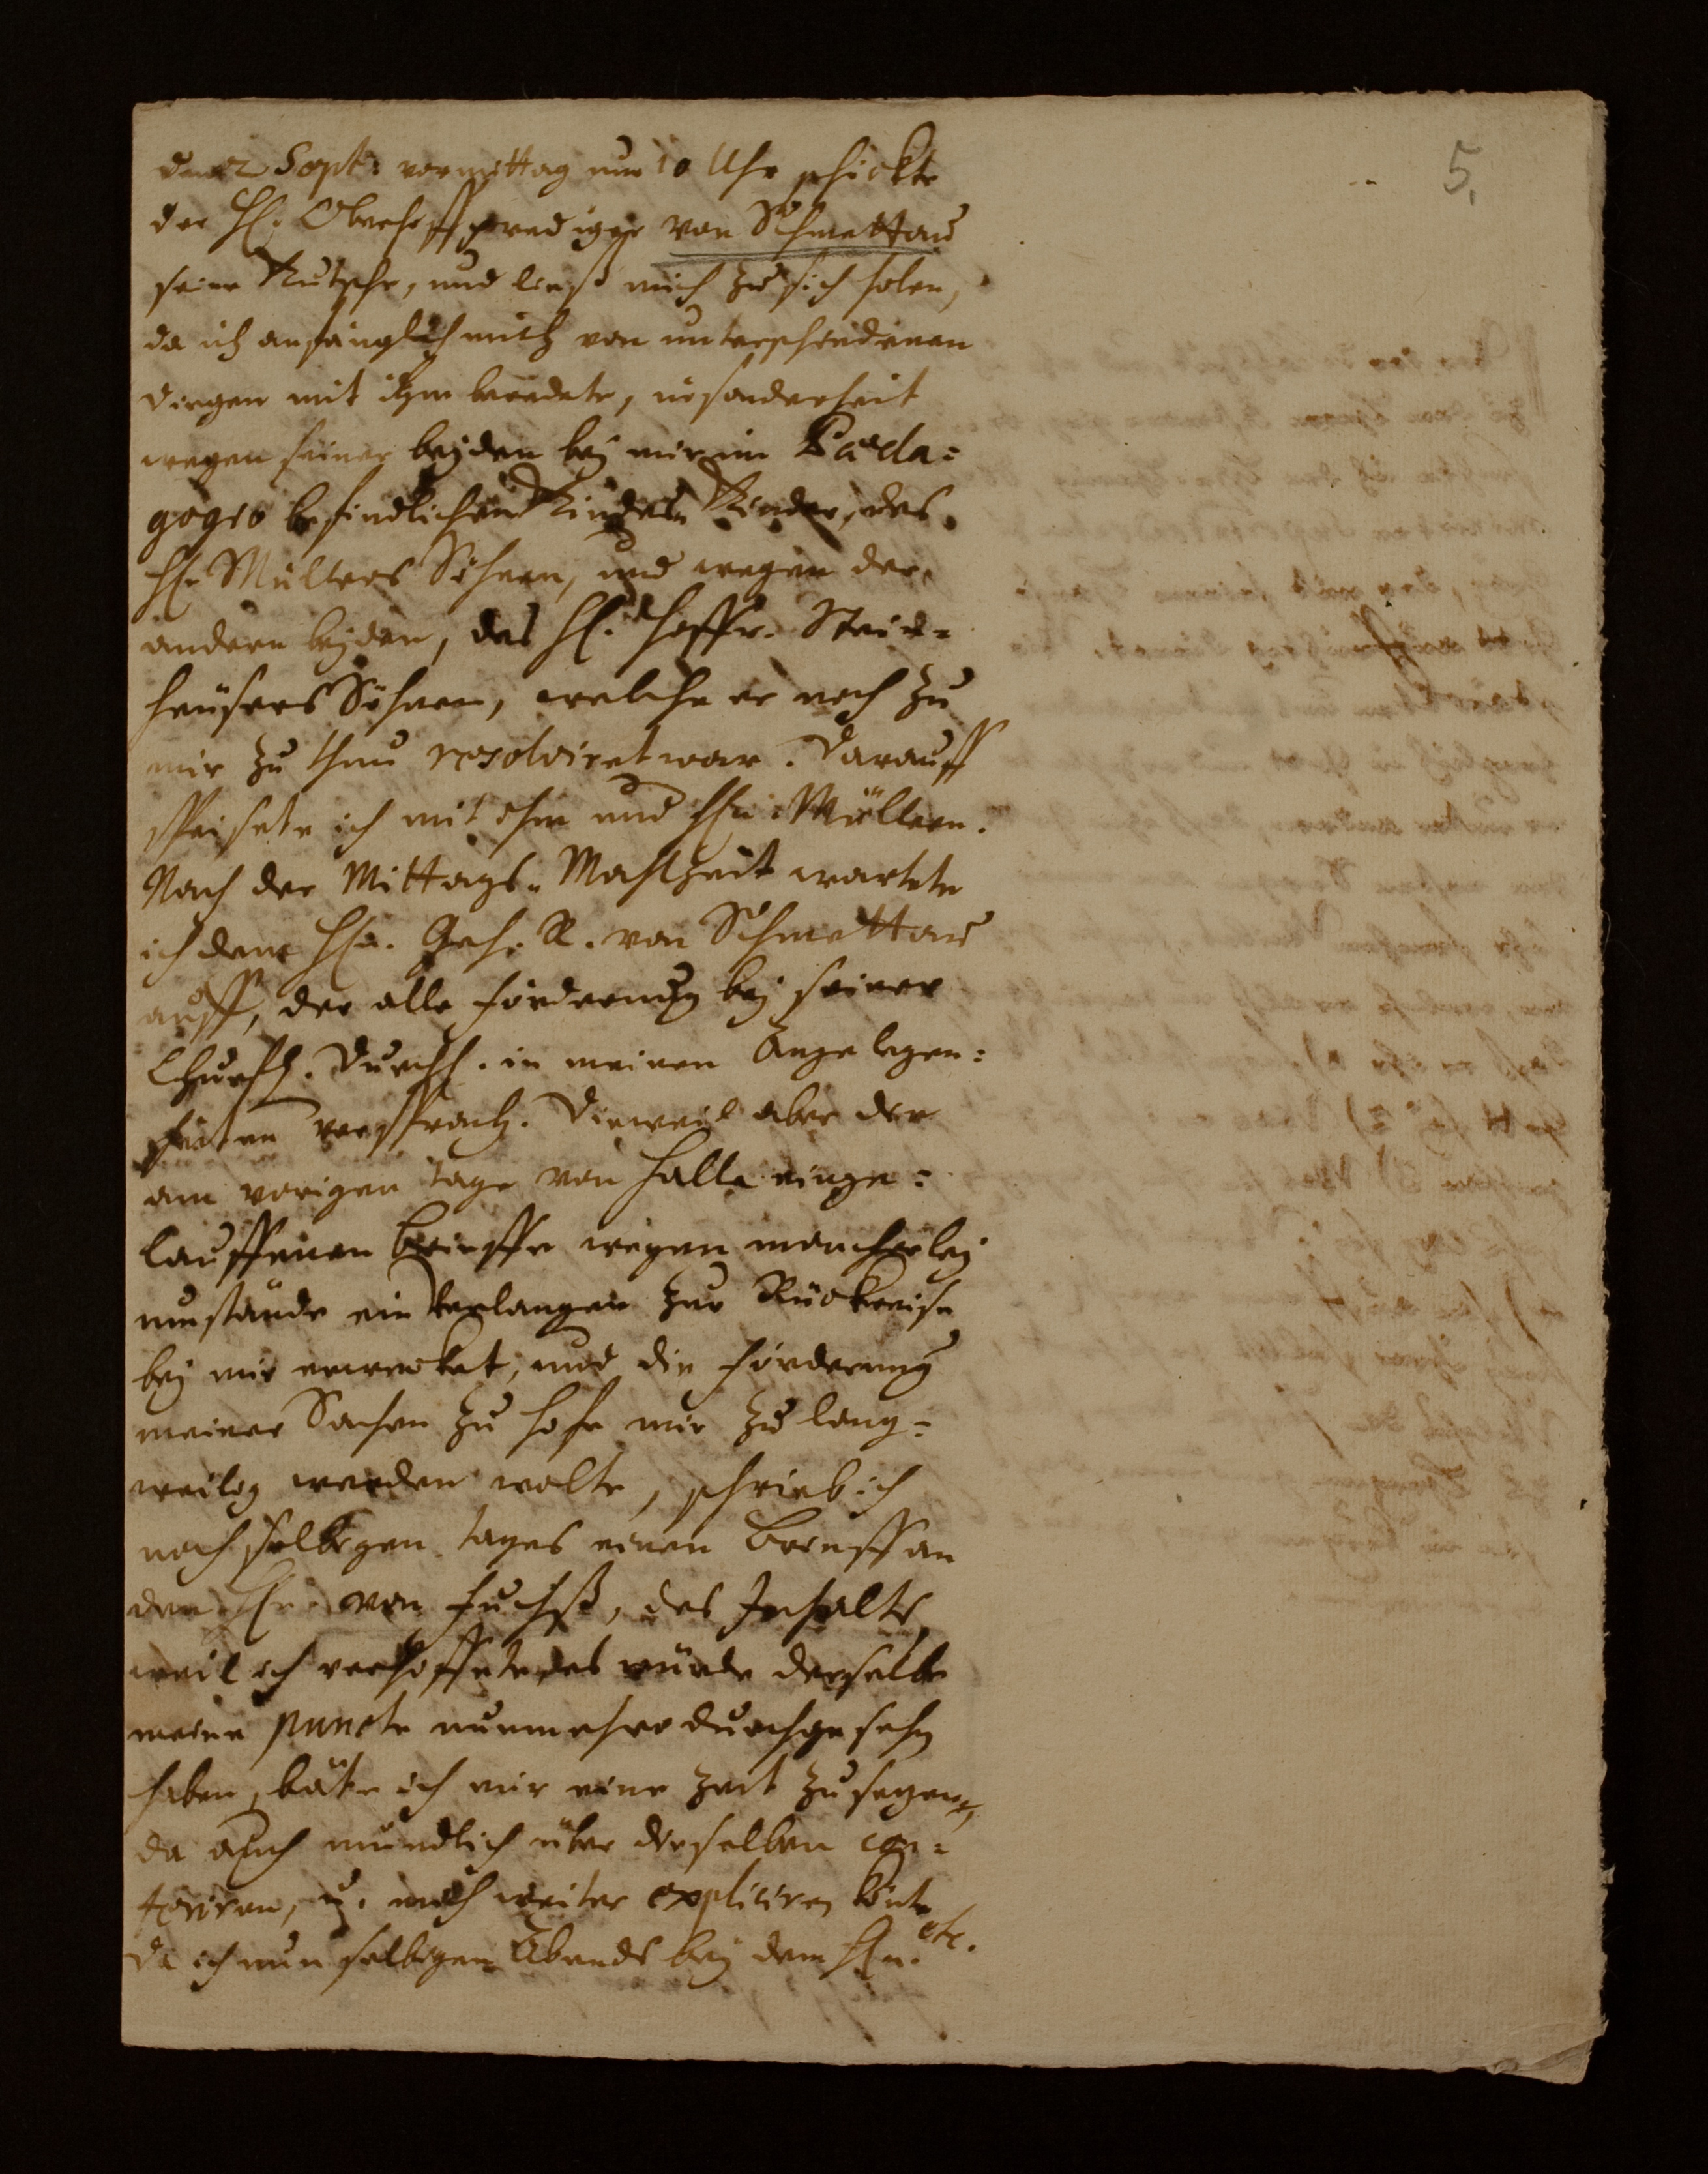 5.
den 2 Sept: vormittag um 10 Uhr schickte
der H. Oberhoffprediger von Schmettau
seine Kutsche, und ließ mich zu sich holen,
da ich anfänglich mich von unterschiedenen
dingen mit ihm beredete, insonderheit
wegen seiner beyden bey mir im Paeda:
gogio befindlichen Kindes Kinder, des
H. Müllers Söhnen, und wegen der
andern beyden, des H. Hoffr. Stein-
heusers Söhnen, welche er noch zu
mir zu thun resolviret war. Darauff
speisete ich mit ihm und Hn. Müllern.
Nach der Mittags-Mahlzeit wartete
ich dem Hn. Geh. R. von Schmettau
auff, der alle forderung bey seiner
Churfl. Durchl. in meinen Angelegen:
heiten versprach. Dieweil aber der
am vorigen tage von Halle einge:
lauffenen brieffe wegen mancherley
umstände ein Verlangen zur Rückreise
bey mir erwecket, und die forderung
meiner Sachen zu Hofe mir zu lang-
weilig werden wolte, schrieb ich
noch selbigen tages einen brieff an
den Hn. von Fuchß, des Inhalts,
weil ich verhoffete, es würde derselbe
meine puncte nunmehro durchgesehn
haben, bäte ich mir eine Zeit zu sagen,
da auch mündlich über dieselben con:
feriren, u. mich weiter expliciren könte etc.
Da ich nun selbigen Abends bey dem Hn.